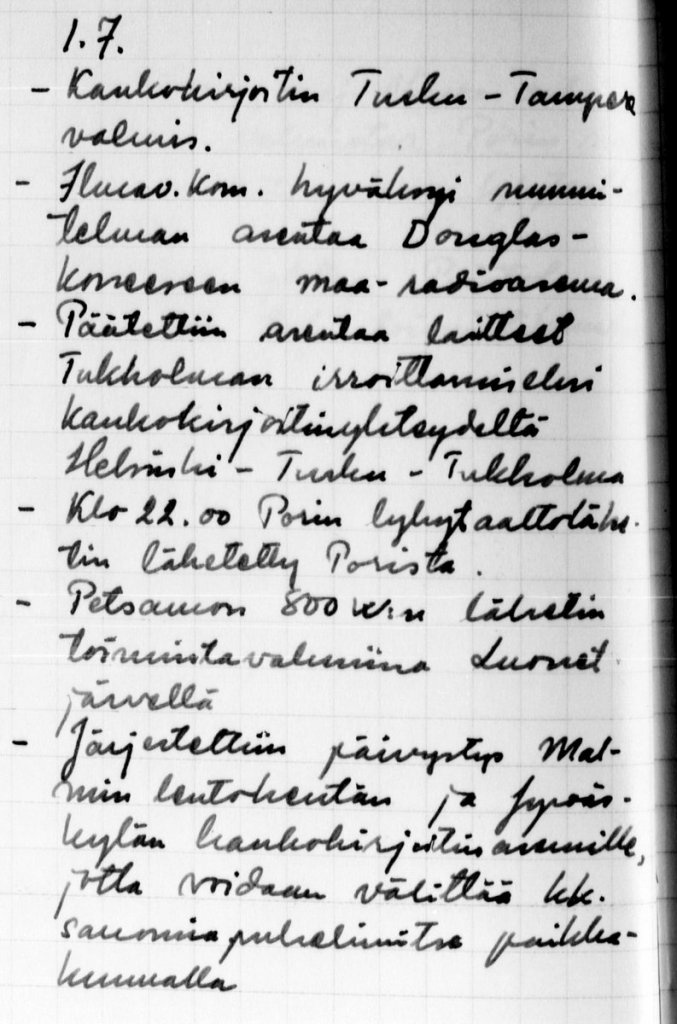 1.7.
- Kaukokirjoitin Turku - Tampere
valmis.
- Ilmav.kom. hyväksyi suunni-
telman asentaa Douglas-
koneeseen maa-radioasema.
- Päätettiin asentaa laitteet
Tukholman irroittamiseksi
kaukokirjoitinyhteydeltä
Helsinki - Turku - Tukholma
- Klo 22.00 Porin lyhytaaltolähe-
tin lähetetty Porista.
- Petsamon 800 W:n lähetin
toimintavalmiina Luonet-
järvellä
- Järjestettiin päivystys Mal-
min lentokentän ja Jyväs-
kylän kaukokirjoitinasemille,
jotta voidaan välittää kk.
sanomia puhelimitse paikka-
kunnalla